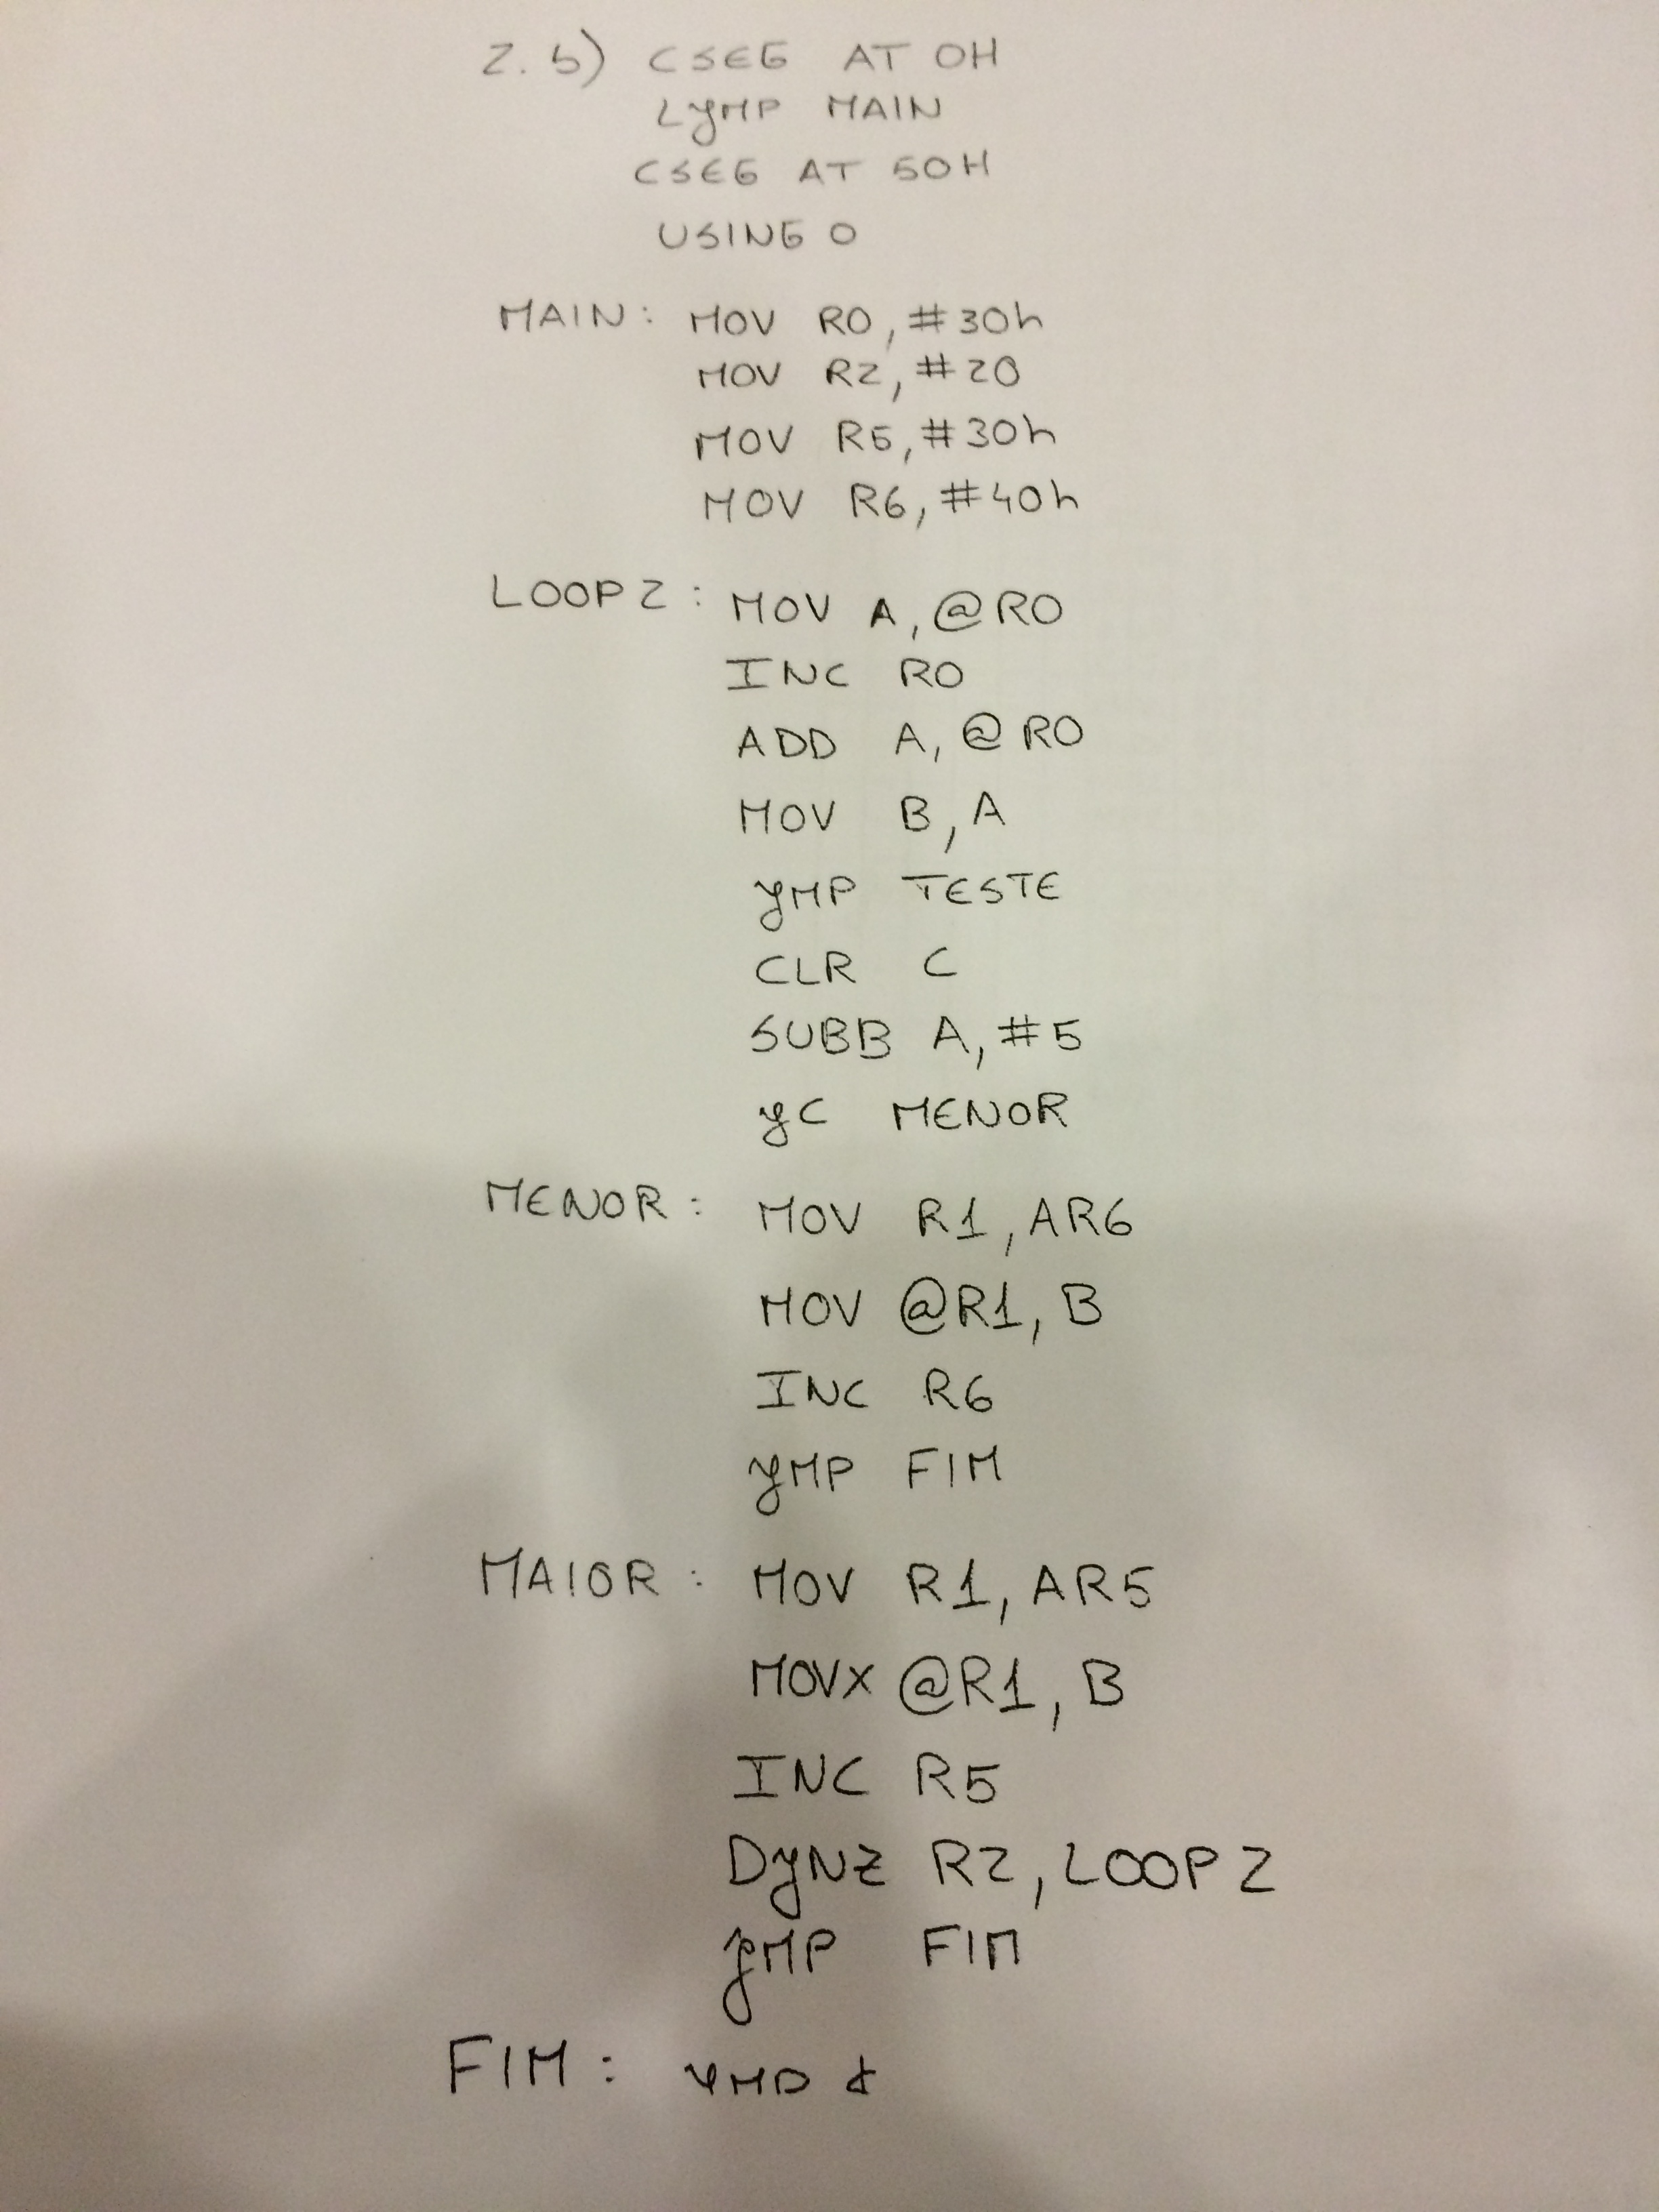 2. b) CSEG AT 0H
LJMP MAIN
CSEG AT 50H
USING 0
MAIN: MOV R0, #30h
MOV R2, #20
MOV R5, #30h
MOV R6, #40h
LOOP2: MOV A, @R0
INC R0
ADD A, @R0
MOV B, A
JMP TESTE
CLR C
SUBB A, #5
JC MENOR
MENOR: MOV R1, AR6
MOV @R1, B
INC R6
JMP FIM
MAIOR: MOV R1, AR5
MOVX @R1, B
INC R5
DJNZ R2, LOOP2
JMP FIM
FIM: JMP